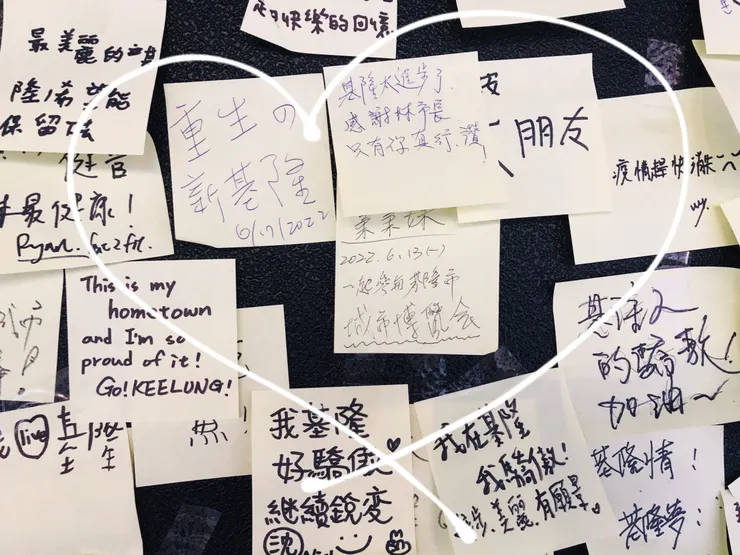 最美麗的
隆
能
保留
最健康！
Ryan
重生の
新基隆
6/17/2022
基隆太進步了
感謝林市長
只有你真行，讚！
朋友
疫情趕快消失
2022.6.13(一)
一起參觀基隆市
城市博覽会
This is my
hometown
and I'm so
proud of it!
Go! KEELUNG!
的驕傲！
加油～
live
我基隆
好驕傲
繼續銳变
我在基隆
我驕傲！
美麗、有願景
基隆情！
基隆夢：
快樂的回憶